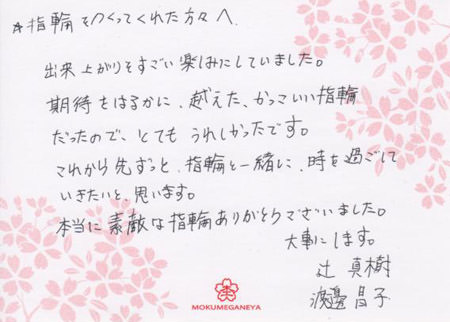 ☆指輪をつくってくれた方々へ.
出来上がりをすごい楽しみにしていました。
期待をはるかに、越えた、かっこいい指輪
だったので、とても うれしかったです。
これから先ずっと、指輪と一緒に、時を過ごして
いきたいと、思います。
本当に 素敵な指輪ありがとうございました。
大事にします。
辻 真樹
渡邊 昌子
MOKUMEGANEYA